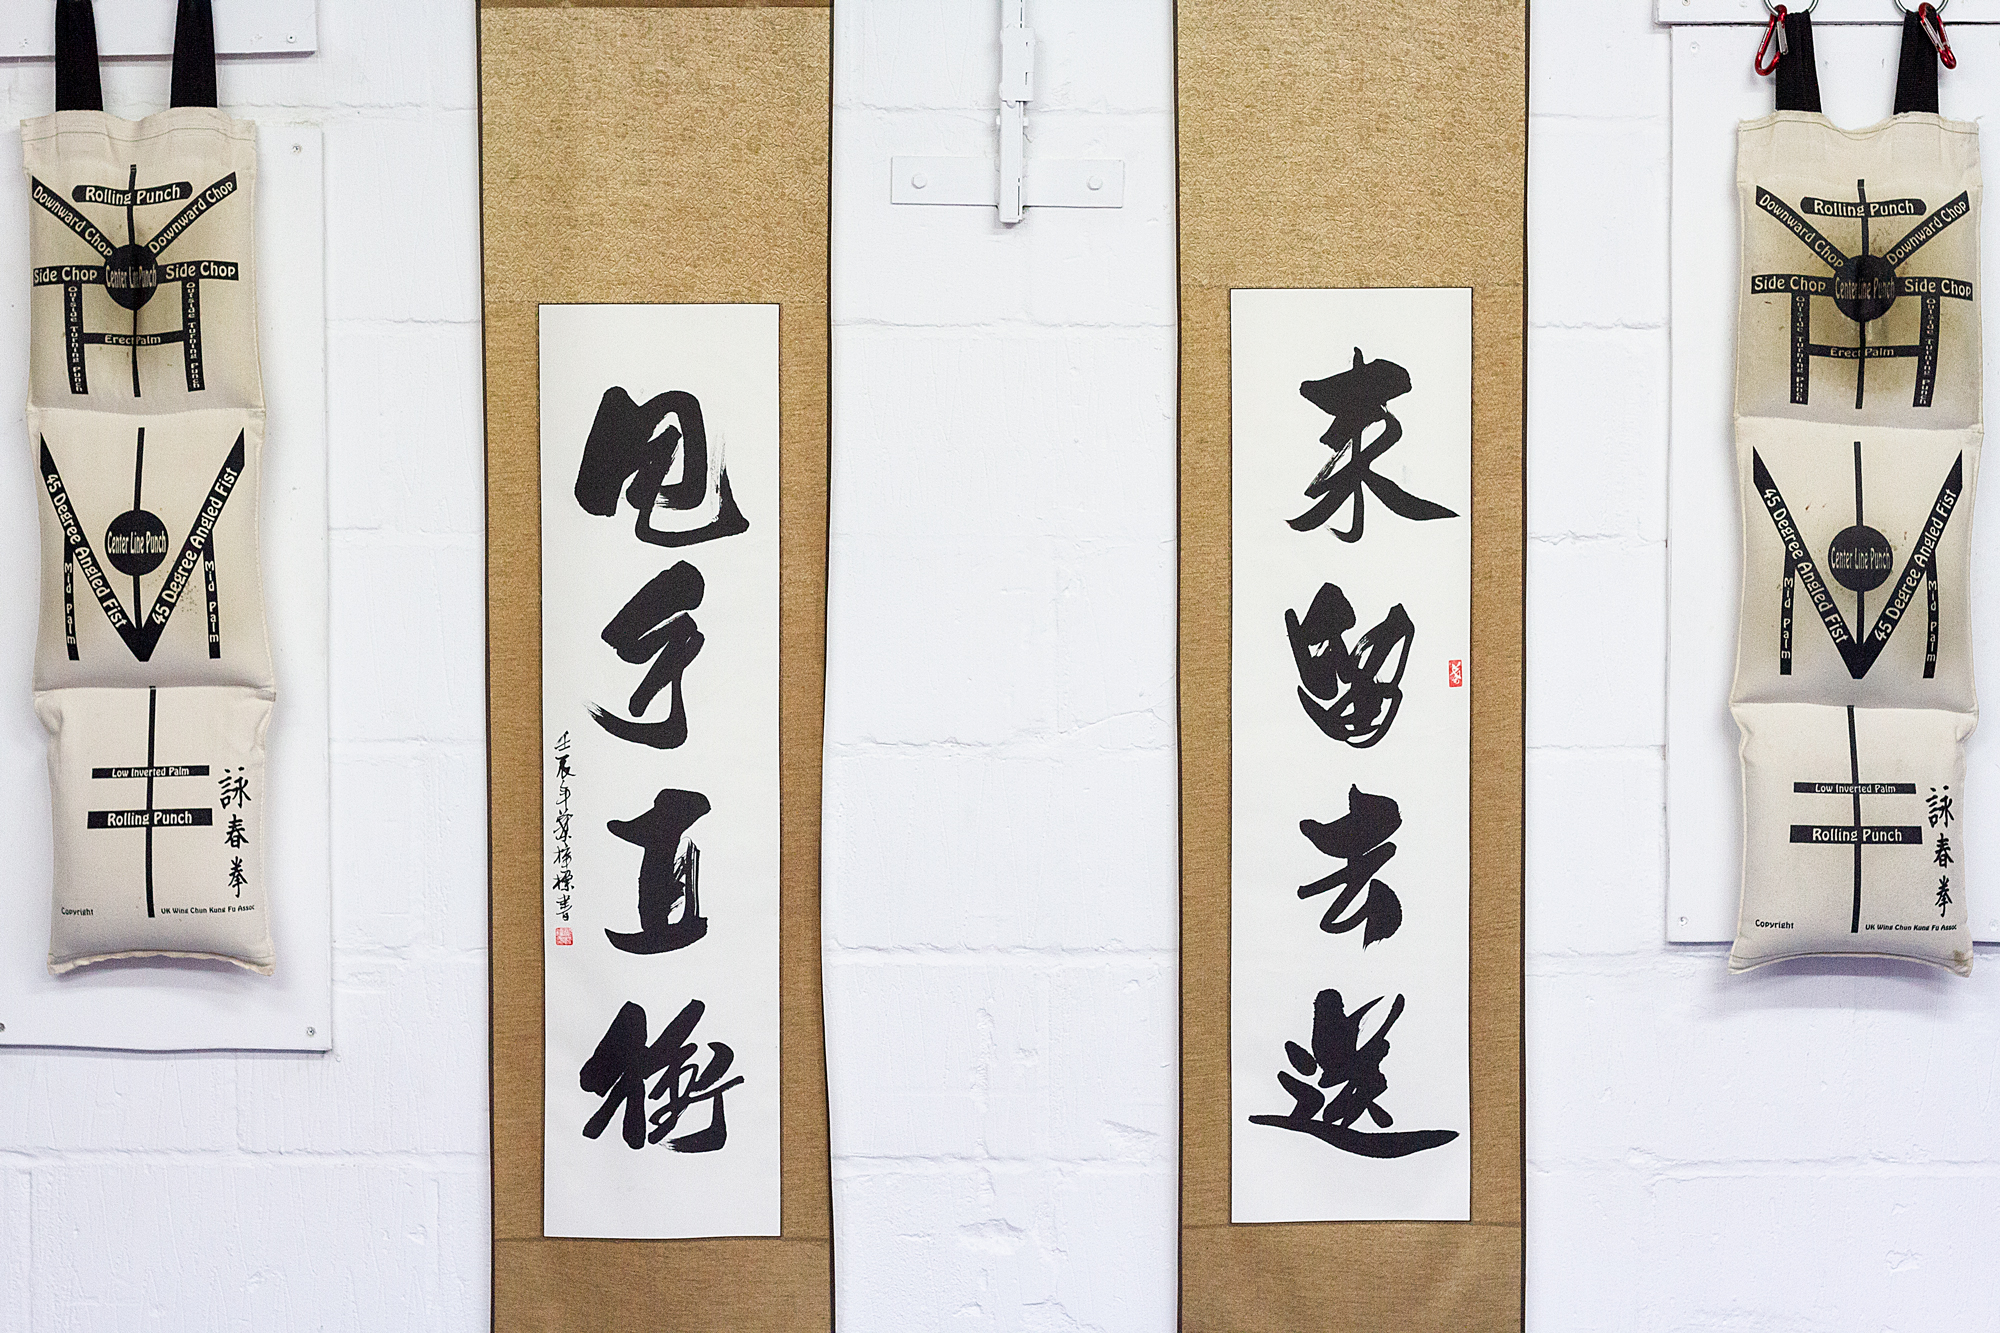 Rolling Punch
Downward Chop
Downward Chop
Side Chop
Center Line Punch
Side Chop
Outside Turning Punch
Outside Turning Punch
Erect Palm
45 Degree Angled Fist
45 Degree Angled Fist
Center Line Punch
Mid Palm
Mid Palm
Low Inverted Palm
Rolling Punch
詠春拳
Copyright
UK Wing Chun Kung Fu Assoc
來留去送
甩手直衝
壬辰年葉

書
Rolling Punch
Downward Chop
Downward Chop
Side Chop
Center Line Punch
Side Chop
Outside Turning Punch
Outside Turning Punch
Erect Palm
45 Degree Angled Fist
45 Degree Angled Fist
Center Line Punch
Mid Palm
Mid Palm
Low Inverted Palm
Rolling Punch
詠春拳
Copyright
UK Wing Chun Kung Fu Assoc